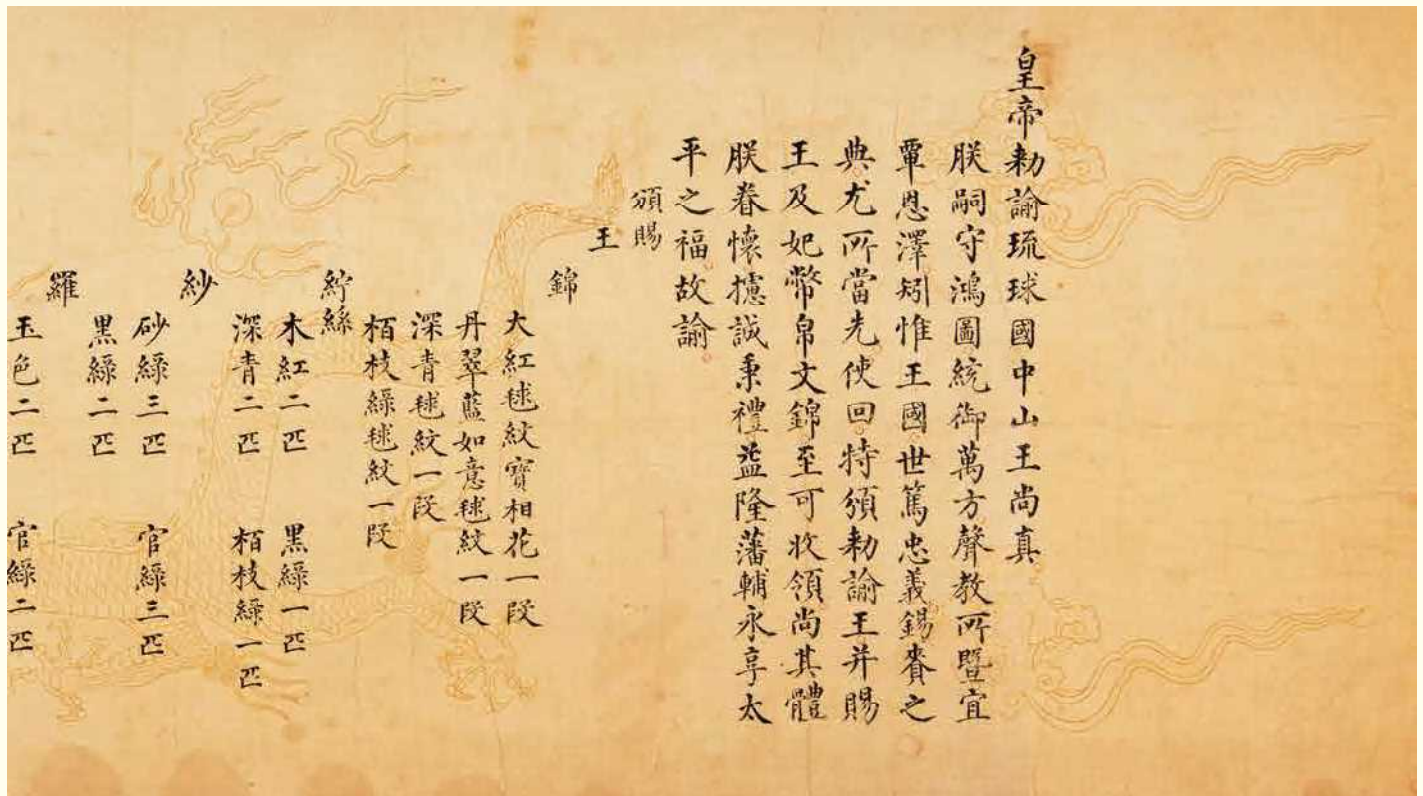 皇帝勑諭琉球國中山王尚真
朕嗣守鴻圖統御萬方聲教所暨宜
覃恩澤矧惟王國世篤忠義錫賚之
典尤所當先使回特頒勑諭王并賜
王及妃幣帛文錦至可收領尚其體
朕眷懷攄誠秉禮益隆藩輔永享太
平之福故諭
頒賜
王
錦
大紅毬紋寶相花一段
丹翠藍如意毬紋一段
深青毬紋一段
栢枝綠毬紋一段
紵絲
木紅二匹 黑綠一匹
深青二匹 栢枝綠一匹
紗
砂綠三匹 官綠三匹
黑綠二匹
羅
玉色二匹 官綠二匹